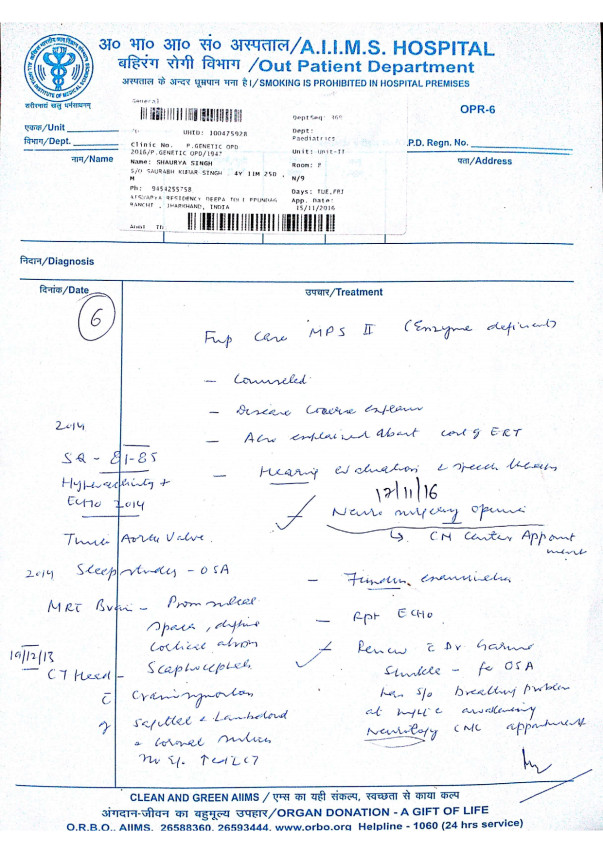 अ० भा० आ० सं० अस्पताल/A.I.I.M.S. HOSPITAL
बहिरंग रोगी विभाग /Out Patient Department
अस्पताल के अन्दर धूम्रपान मना है।/SMOKING IS PROHIBITED IN HOSPITAL PREMISES
शरीरमाद्यं खलु धर्मसाधनम्
OPR-6
General
एकक/Unit
विभाग/Dept.
नाम/Name
UHID: 100475928
Clinic No. P.GENETIC OPD
2016/P.GENETIC OPD/1947
Name: SHAURYA SINGH
S/O SAURABH KUMAR SINGH . 4Y 11M 25D
M
Ph: 9454255758
RESIDENCY DEEPA
RANCHI , JHARKHAND, INDIA
Dept:
Paediatrics
Unit: Unit-II
Room: 7
N/9
Days: TUE,FRI
App. Date:
15/11/2016
.P.D. Regn. No.
पता/Address
निदान/Diagnosis
दिनांक/Date
उपचार/Treatment
6
Care MPS II (Enzyme deficient)
- Counseled
- Disease course explain
- Also explained about cost of ERT
- Hearing evaluation & speech
17/11/16
Neuro surgery
CN Center Appointment
- Fundus examination
- Rpt ECHO
- Review Dr
- fe OSA
has s/o breathing problem
at night awakening
Neurology appointment
2014
SQ - 81-85
Hyperactivity +
ECHO 2014
Thick Aortic Valve.
2014 Sleep study - OSA
MRI Brain - Prom
space,
cortical
19/12/13
CT Head - Scaphocephaly
c̄ Craniosynostosis
of Sagittal & Lambdoid
& coronal sutures
CLEAN AND GREEN AIIMS / एम्स का यही संकल्प, स्वच्छता से काया कल्प
अंगदान-जीवन का बहुमूल्य उपहार/ORGAN DONATION - A GIFT OF LIFE
O.R.B.O., AIIMS, 26588360, 26593444, www.orbo.org Helpline - 1060 (24 hrs service)